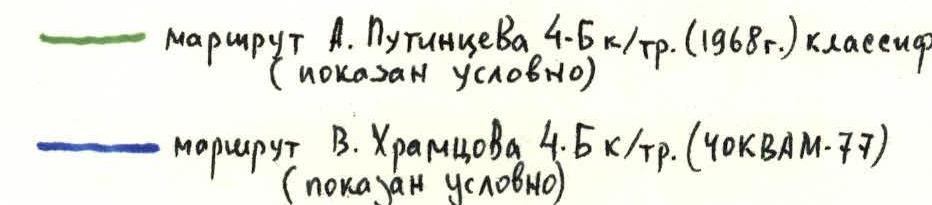 маршрут А. Путинцева 4-Б к/тр. (1968г.) классиф
(показан условно)
маршрут В. Храмцова 4.Б к/тр. (ЧОКВАМ-77)
(показан условно)